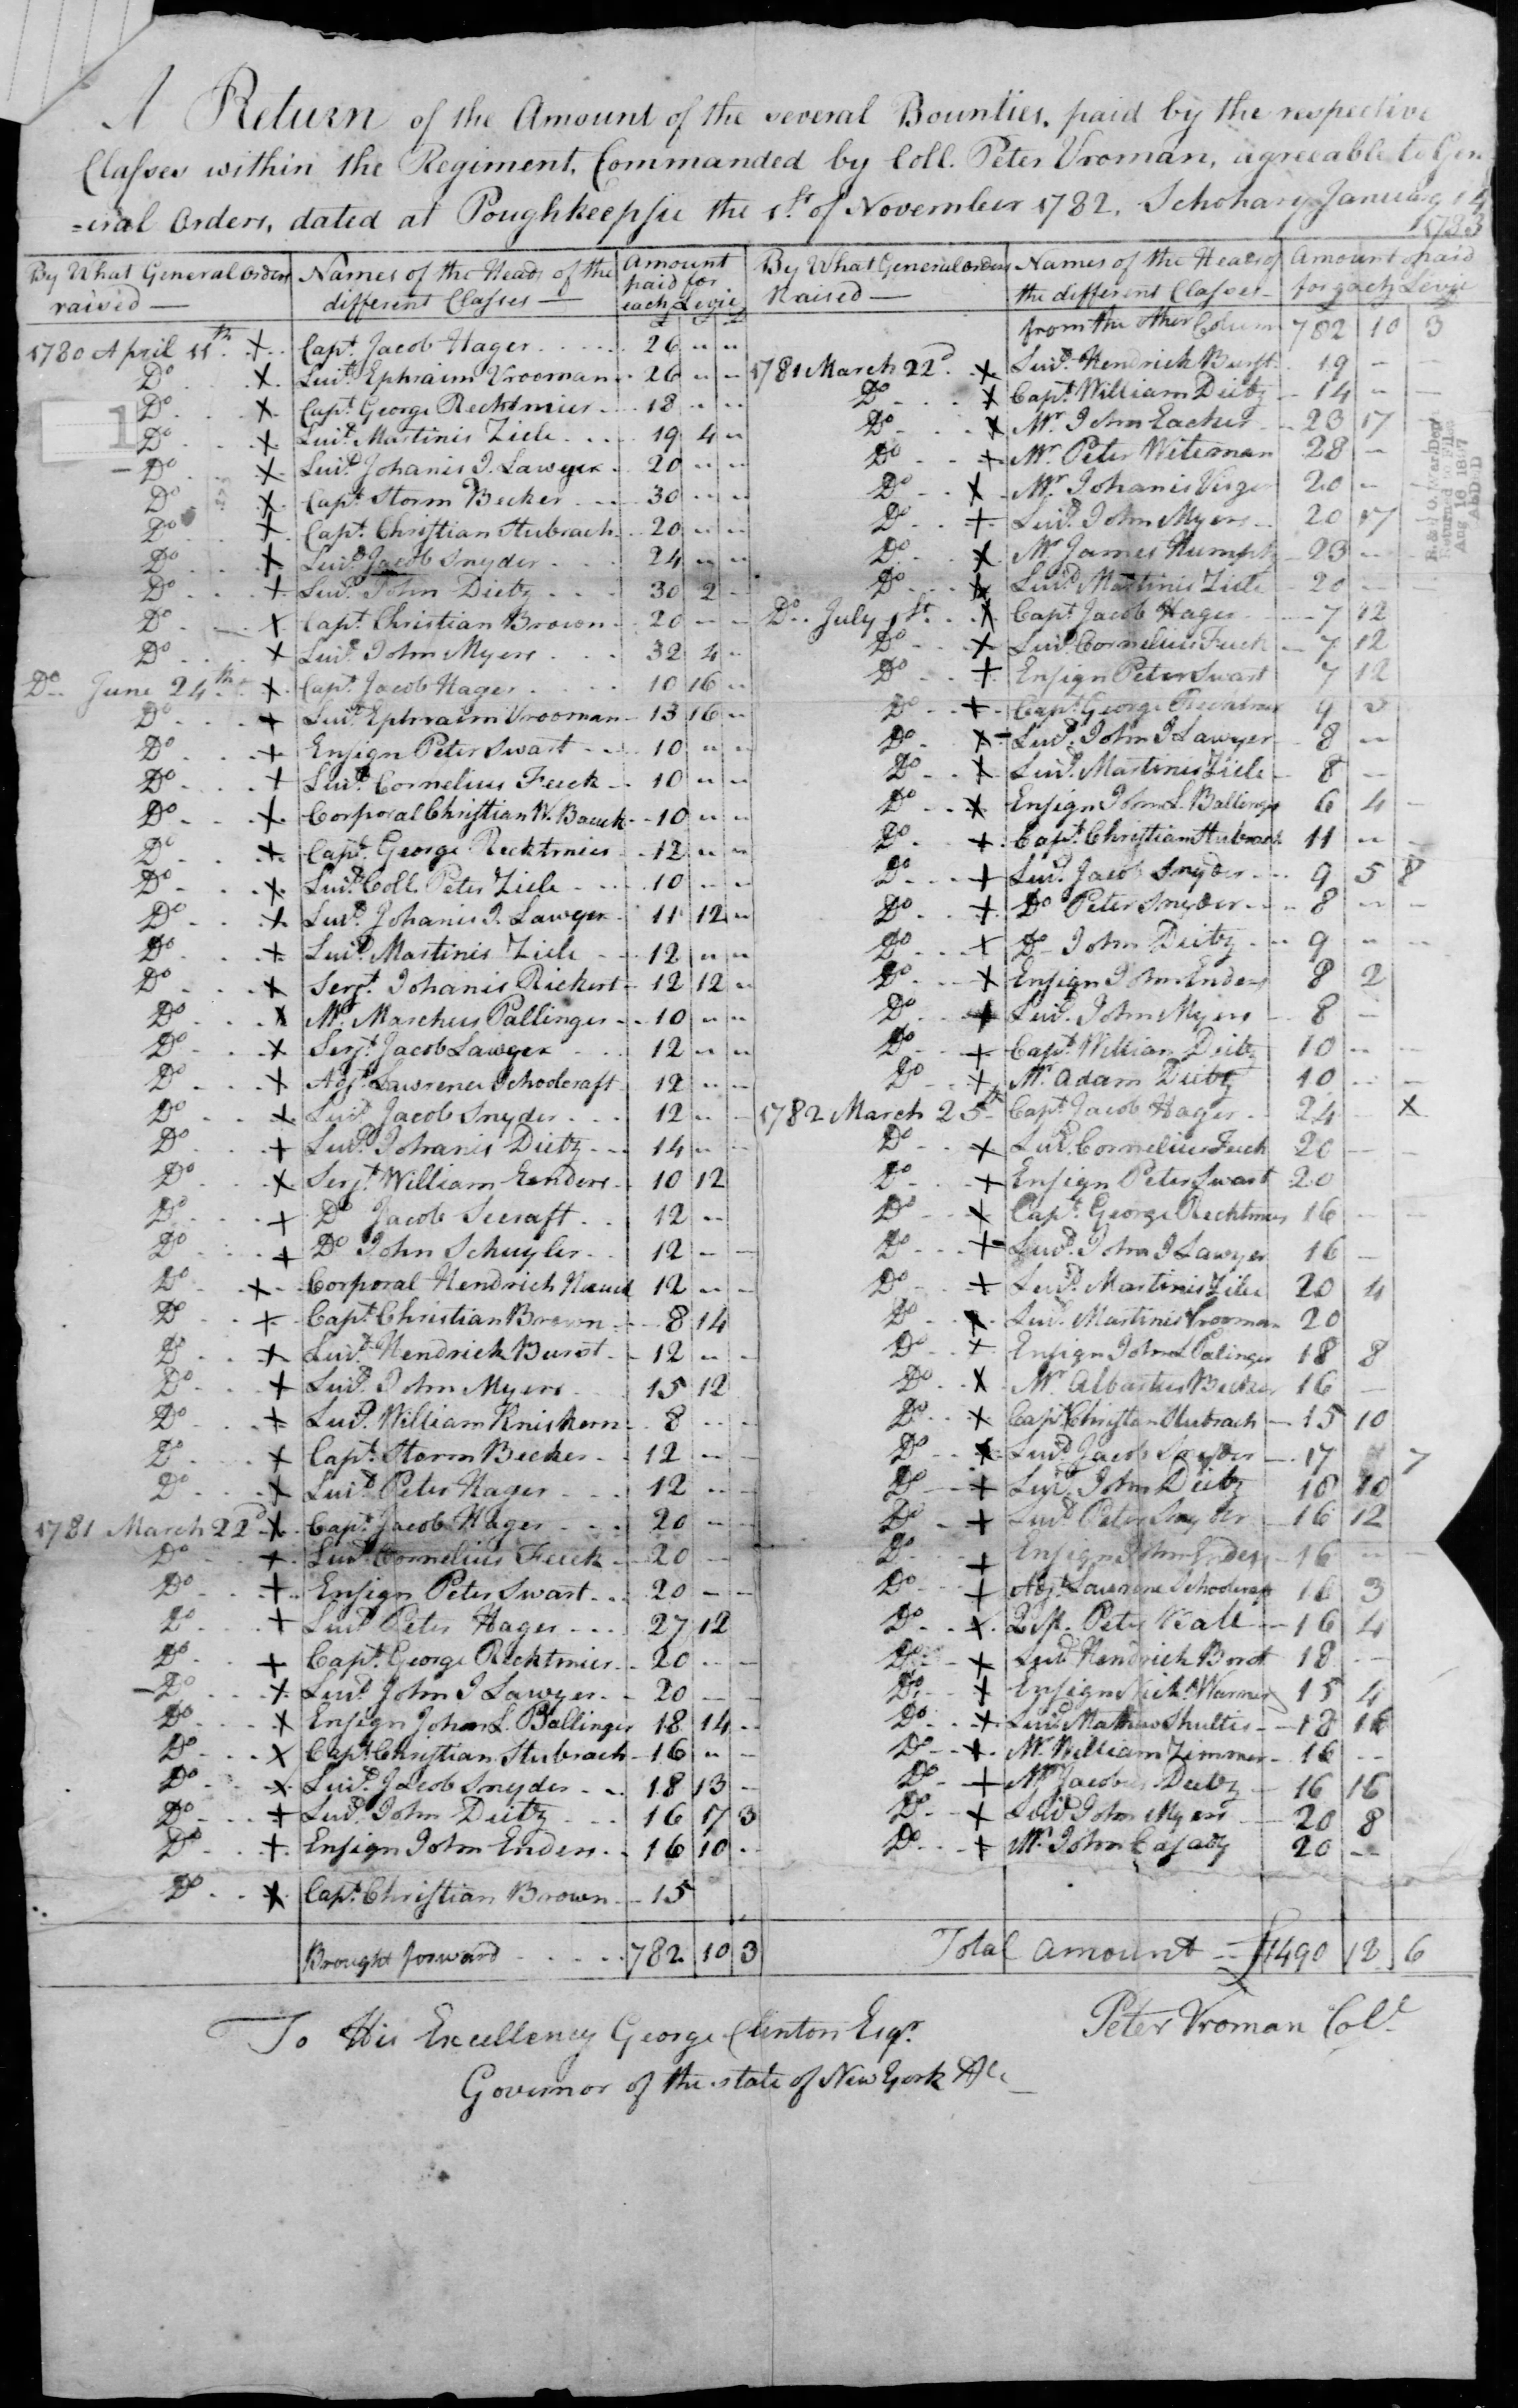 A Return of the Amount of the several Bounties, paid by the respective
Classes within the Regiment, Commanded by Coll. Peter Vroman, agreeable to Gen
=eral Orders, dated at Poughkeepsie the 1st of November 1782. Schohary January 14
1783
By What General Orders raised — Names of the Heads of the different Classes — Amount paid for each Levie
1780 April 11th X Capt. Jacob Hager 26 " "
Do X Luit. Ephraim Vrooman 26 " "
Do X Capt. George Recktmier 18 " "
Do X Luit. Martinis Ziele 19 4 "
Do X Luit. Johanis I. Lawyer 20 " "
Do X Capt. Storm Becker 30 " "
Do X Capt. Christian Stubrach 20 " "
Do X Luit. Jacob Snyder 24 " "
Do + Luit. John Dietz 30 2 -
Do X Capt. Christian Brown 20 - -
Do X Luit. John Myers 32 4 "
Do June 24th X Capt. Jacob Hager 10 16 "
Do + Luit. Ephraim Vrooman 13 16 "
Do + Ensign Peter Swart 10 " "
Do + Luit. Cornelius Feeck 10 " "
Do X Corporal Christian W. Bauck 10 " "
Do + Capt. George Recktmier 12 " "
Do X Luit. Coll. Peter Ziele 10 " "
Do + Luit. Johanis I. Lawyer 11 12 "
Do + Luit. Martinis Ziele 12 " "
Do X Serjt. Johanis Rickert 12 12 "
Do X Mr. Marcheus Pallinger 10 " "
Do X Serjt. Jacob Lawyer 12 " "
Do X Adjt. Lawrence Schoolcraft 12 " "
Do X Luit. Jacob Snyder 12 " -
Do + Luit. Johanis Dietz 14 " -
Do X Serjt. William Eenders 10 12
Do + Do Jacob Seeraft 12 "
Do + Do John Schuyler 12 - -
Do X Corporal Hendrich 12 " -
Do + Capt. Christian Brown 8 14
Do X Luit. Hendrick Burst 12 " -
Do + Luit. John Myers 15 12
Do + Luit. William Kniskern 8 " -
Do X Capt. Storm Becker 12 - -
Do X Luit. Peter Hager 12 " -
1781 March 22d X Capt. Jacob Hager 20 - -
Do + Luit. Cornelius Feeck 20 -
Do + Ensign Peter Swart 20 - -
Do + Luit. Peter Hager 27 12
Do + Capt. George Recktmier 20 - -
Do X Luit. John I Lawyer 20 - -
Do X Ensign John L. Ballinger 18 14 "
Do X Capt. Christian Stubrach 16 " -
Do X Luit. Jacob Snyder 18 13 -
Do + Luit. John Dietz 16 17 3
Do + Ensign John Enders 16 10 "
Do X Capt. Christian Brown 15
Brought forward 782 10 3
By What General Orders Raised — Names of the Heads of the different Classes — Amount paid for each Levie
from the other Column 782 10 3
1781 March 22d X Luit. Hendrick Burst 19 -
Do X Capt. William Dietz 14 "
Do X Mr. John Eacker 23 17
Do + Mr. Peter Witeman 28 -
Do X Mr. Johanis 20 -
Do + Luit. John Myers 20 17
Do X Mr. James 23 "
Do X Luit. Martinis Ziele 20 -
Do July 1st X Capt. Jacob Hager 7 12
Do X Luit. Cornelius Feeck 7 12
Do + Ensign Peter Swart 7 12
Do + Capt. George Recktmier 9
Do X Luit. John I Lawyer 8 "
Do X Luit. Martinis Ziele 8 -
Do X Ensign John L. Ballinger 6 4 -
Do + Capt. Christian Stubrach 11 " -
Do + Luit. Jacob Snyder 9 5 8
Do + Do Peter Snyder 8 " -
Do + Do John Dietz 9 " "
Do X Ensign John Enders 8 2
Do + Luit. John Myers 8 -
Do + Capt. William Dietz 10 " -
Do + Mr. Adam Dietz 10 " -
1782 March 25th Capt. Jacob Hager 24 X
Do X Luit. Cornelius Feeck 20 - -
Do + Ensign Peter Swart 20
Do X Capt. George Recktmier 16 - -
Do + Luit. John I Lawyer 16 -
Do + Luit. Martinis Ziele 20 4
Do X Luit. Martinis Vrooman 20
Do + Ensign John L Palinger 18 8
Do X Mr. Albartus Becker 16 -
Do X Capt. Christian Stubrach 15 10
Do X Luit. Jacob Snyder 17 7
Do + Luit. John Dietz 18 10
Do + Luit. Peter Snyder 16 12
Do + Ensign John Enders 16 " -
Do + Adjt. Lawrence Schoolcraft 16 3
Do X Peter 16 4
Do + Luit. Hendrick Borst 18 -
Do + Ensign Nichs. Warner 15 4
Do X Luit. Mathew Shultis 18 16
Do X Mr. William Zimmer 16 "
Do + Mr. Jacobus Dietz 16 16
Do + Luit. John Myers 20 8
Do + Mr. John Casady 20 -
Total amount = £1490 12 6
To His Excellency George Clinton Esqr.
Governor of the state of New York &c
Peter Vroman Coll.
R. & P. O. War Dep't
Returned to Files
Aug 16 1897
1